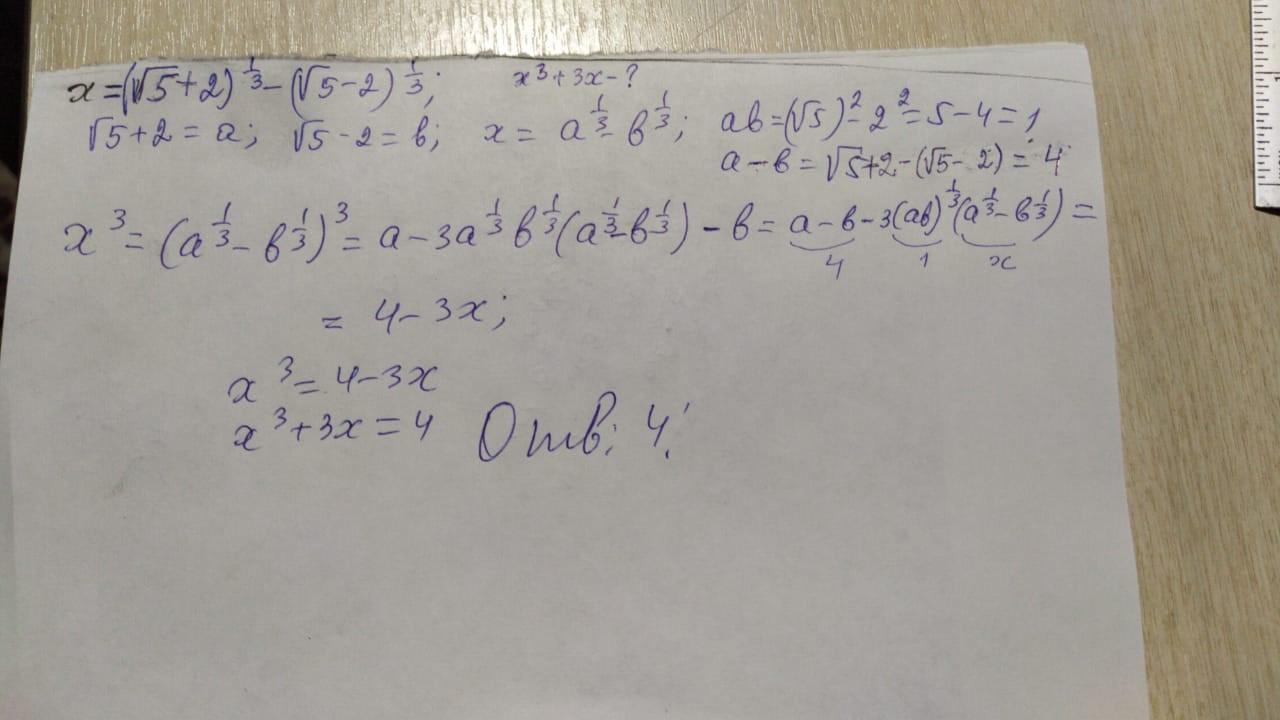 x=(√5+2)^{1/3}-(√5-2)^{1/3}; x³+3x-?
√5+2=a; √5-2=b; x=a^{1/3}-b^{1/3}; ab=(√5)²-2²=5-4=1
a-b=√5+2-(√5-2)=4
x³=(a^{1/3}-b^{1/3})³=a-3a^{1/3}b^{1/3}(a^{1/3}-b^{1/3})-b=a-b-3(ab)^{1/3}(a^{1/3}-b^{1/3})=
4 1 x
=4-3x;
x³=4-3x
x³+3x=4 Отв: 4.